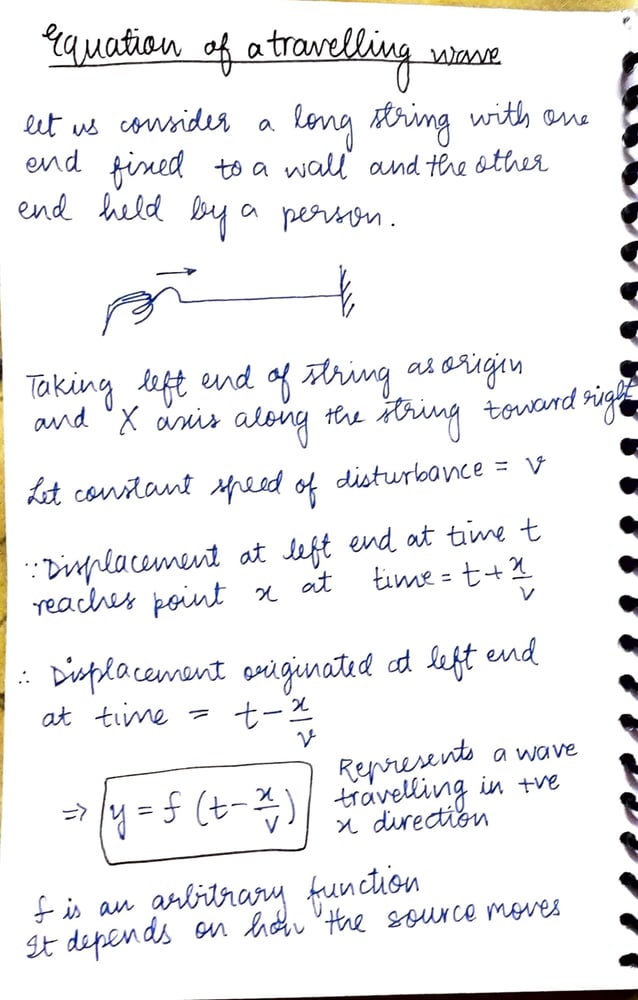 Equation of a travelling wave
let us consider a long string with one
end fixed to a wall and the other
end held by a person.
Taking left end of string as origin
and X axis along the string toward right
Let constant speed of disturbance = v
∵ Displacement at left end at time t
reaches point x at time = t + x/v
∴ Displacement originated at left end
at time = t - x/v
⇒ y = f (t - x/v)
Represents a wave
travelling in +ve
x direction
f is an arbitrary function
It depends on how the source moves